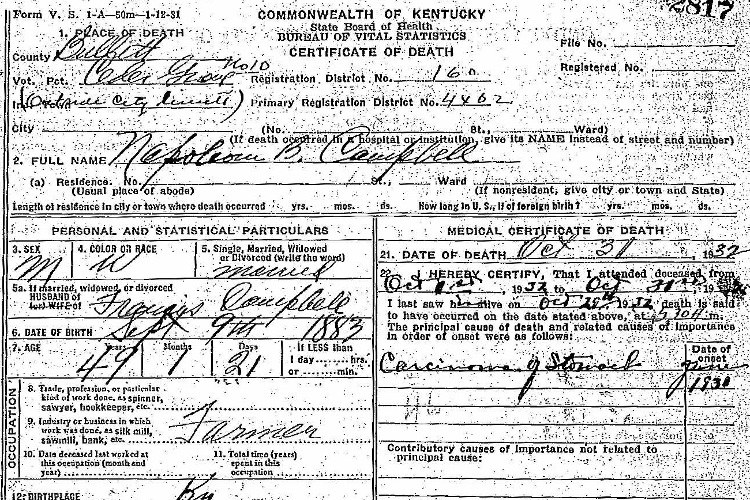 Form V. S. 1-A—50m—1-12-31
COMMONWEALTH OF KENTUCKY
2817
State Board of Health
BUREAU OF VITAL STATISTICS
CERTIFICATE OF DEATH
1. PLACE OF DEATH
County Bullitt
File No.
Vot. Pct. Cedar Grove No 10 Registration District No. 160
Registered No.
(Outside city limits) Primary Registration District No. 4402
City (No. St., Ward)
(If death occurred in a hospital or institution, give its NAME instead of street and number)
2. FULL NAME Napoleon B. Campbell
(a) Residence. No. St., Ward
(Usual place of abode) (If nonresident, give city or town and State)
Length of residence in city or town where death occurred yrs. mos. ds. How long in U. S., if of foreign birth? yrs. mos. ds.
PERSONAL AND STATISTICAL PARTICULARS
3. SEX M
4. COLOR OR RACE W
5. Single, Married, Widowed or Divorced (write the word) married
5a. If married, widowed, or divorced
HUSBAND of
(or) WIFE of Frances Campbell
6. DATE OF BIRTH Sept 9th 1883
7. AGE 49 Months 1 Days 21 If LESS than
1 day ........ hrs.
or ........ min.
OCCUPATION
8. Trade, profession, or particular
kind of work done, as spinner,
sawyer, bookkeeper, etc.
9. Industry or business in which
work was done, as silk mill,
sawmill, bank, etc. Farmer
10. Date deceased last worked at
this occupation (month and
year)
11. Total time (years)
spent in this
occupation
12. BIRTHPLACE Ky
MEDICAL CERTIFICATE OF DEATH
21. DATE OF DEATH Oct 31, 1932
22. I HEREBY CERTIFY, That I attended deceased from
Oct 1st, 1932 to Oct 31st, 19
I last saw him alive on Oct 29th 1932 death is said
to have occurred on the date stated above, at m.
The principal cause of death and related causes of importance
in order of onset were as follows:
Date of
onset
Carcinoma of Stomach June
1930
Contributory causes of importance not related to
principal cause: